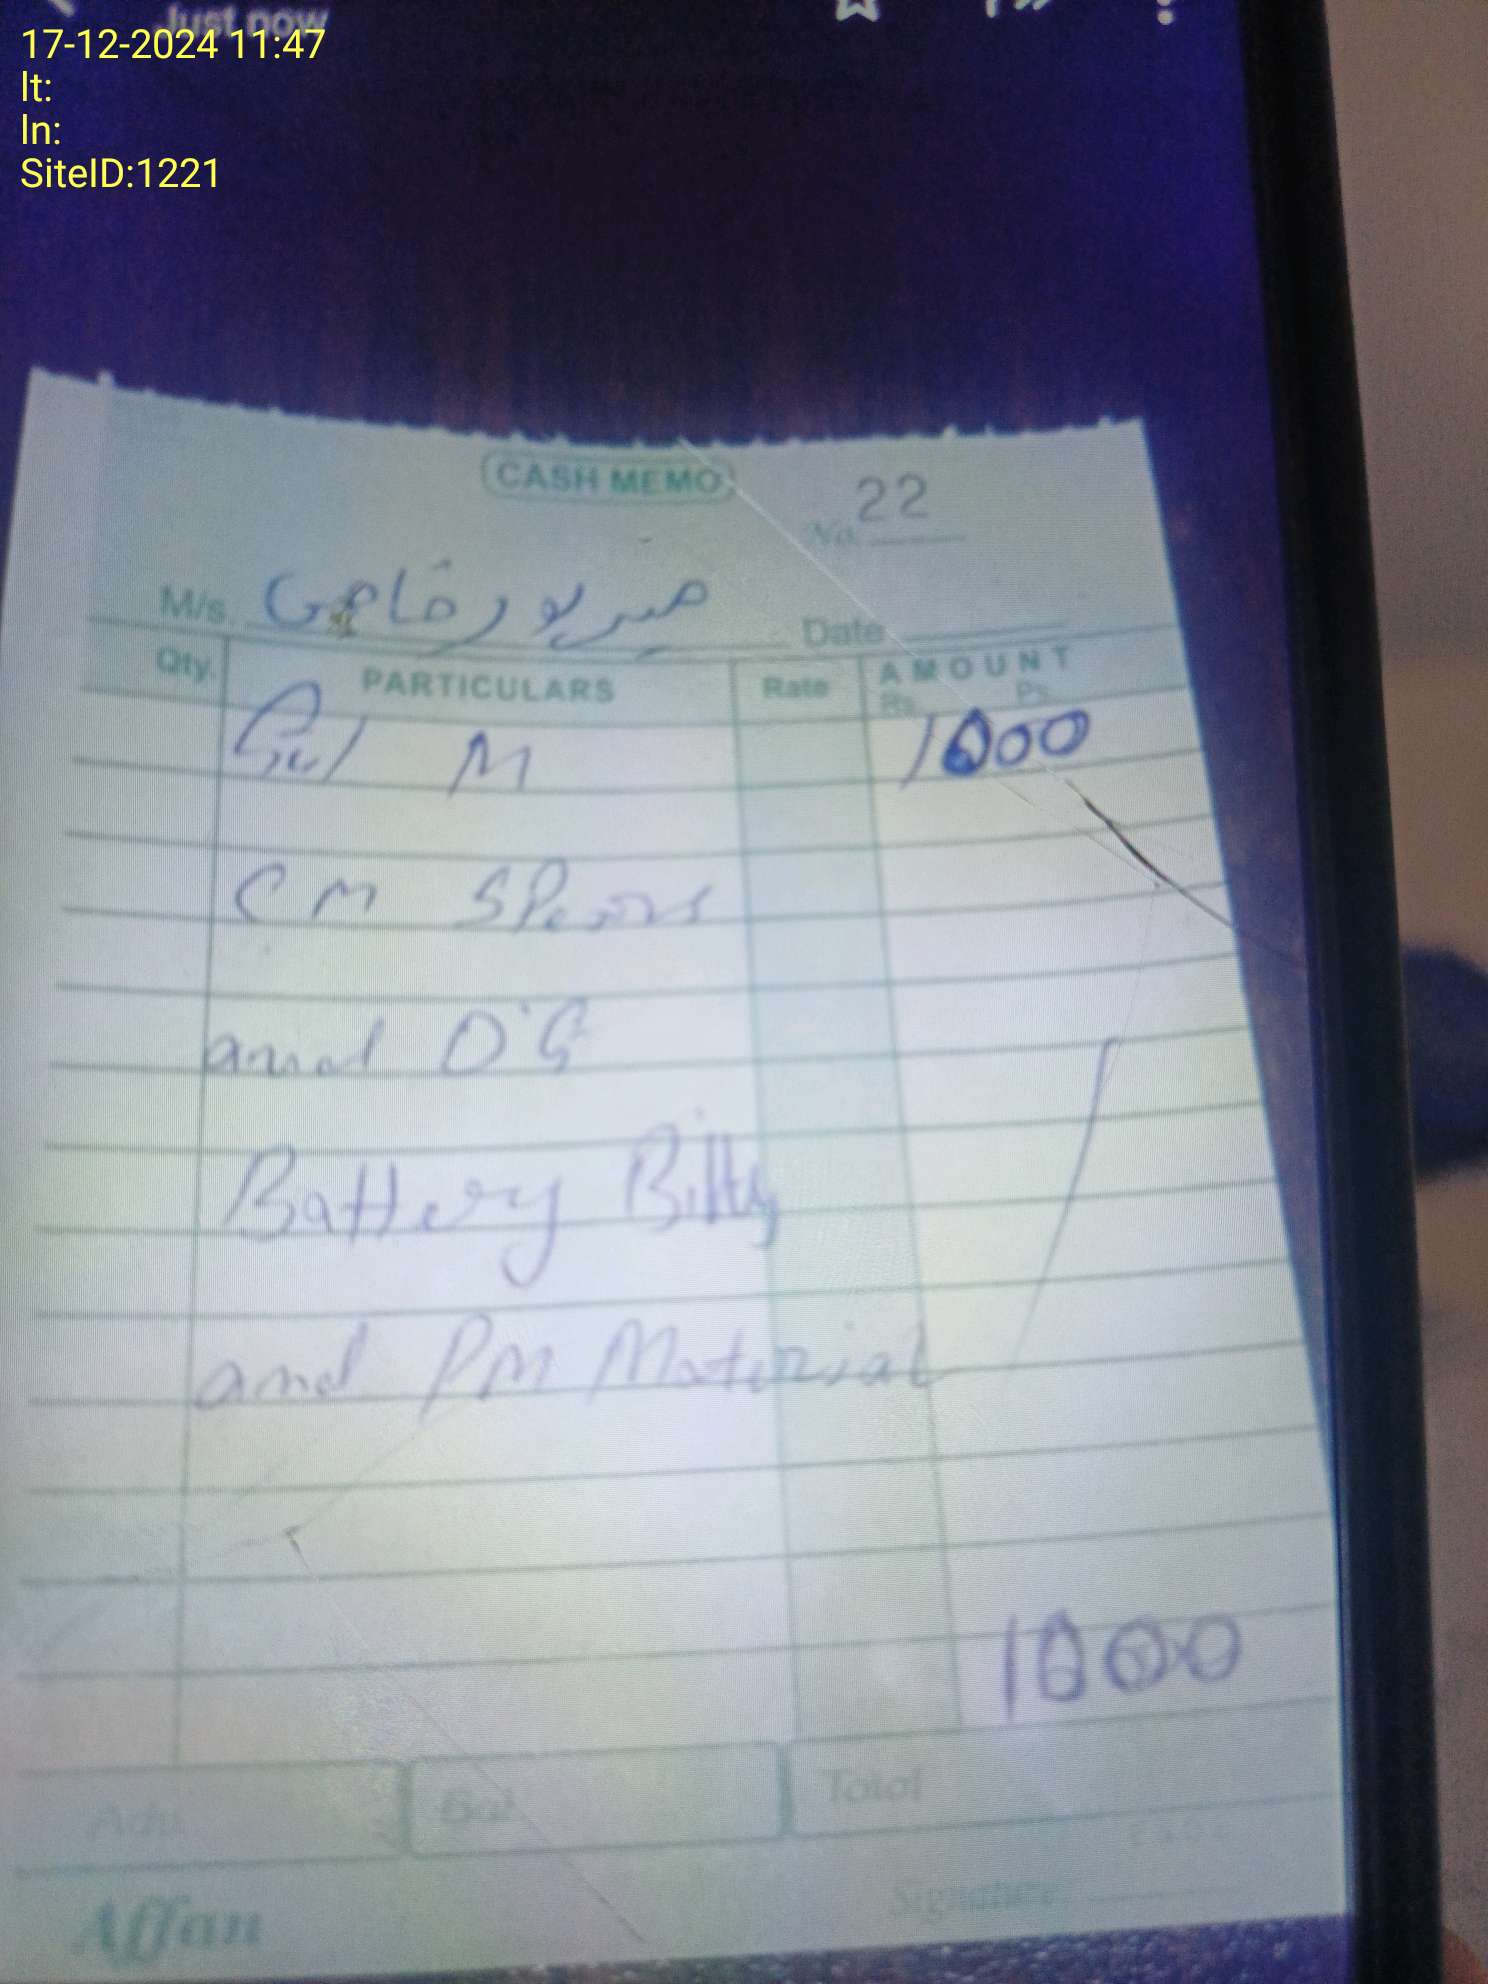 Just now
17-12-2024 11:47
lt:
ln:
SiteID:1221
CASH MEMO
No. 22
M/s. میرپور خاص
Date
Qty. PARTICULARS Rate AMOUNT
Rs. Ps.
M 1000
CM
and
Battery Bilty
and PM Material
1000
Adv. Bal Total
Signature
Affan